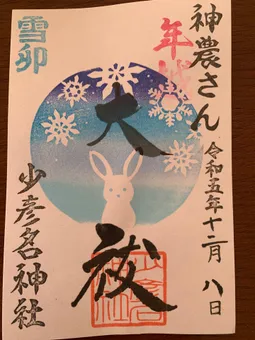 神農さん
令和五年十二月八日
年越
大祓
雪卯
少彦名神社